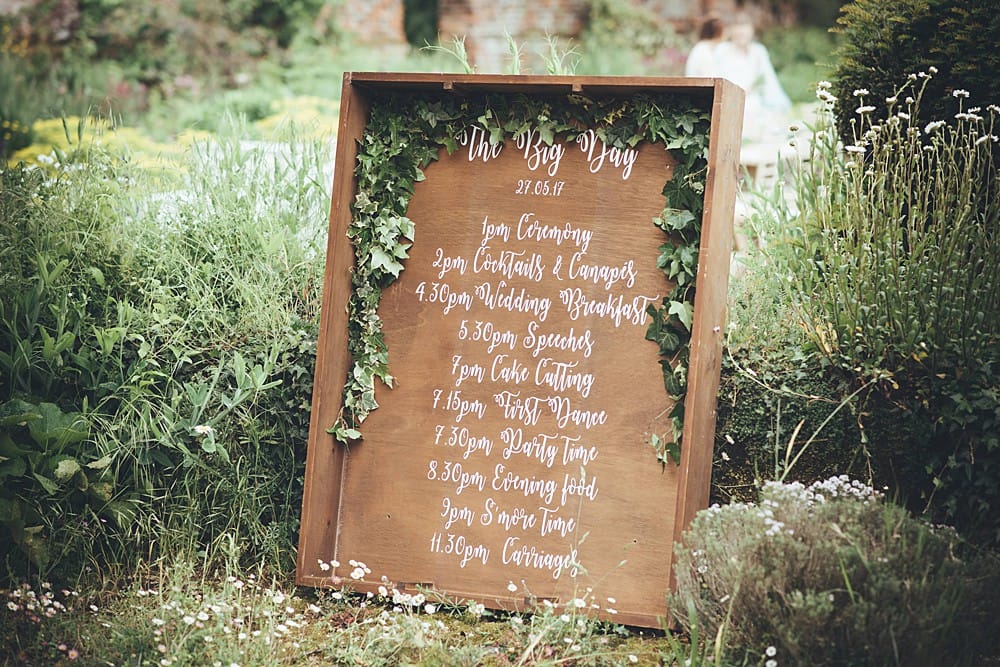 The Big Day
27.05.17
1pm Ceremony
2pm Cocktails & Canapés
4.30pm Wedding Breakfast
5.30pm Speeches
7pm Cake Cutting
7.15pm First Dance
7.30pm Party Time
8.30pm Evening food
9pm S'more Time
11.30pm Carriages